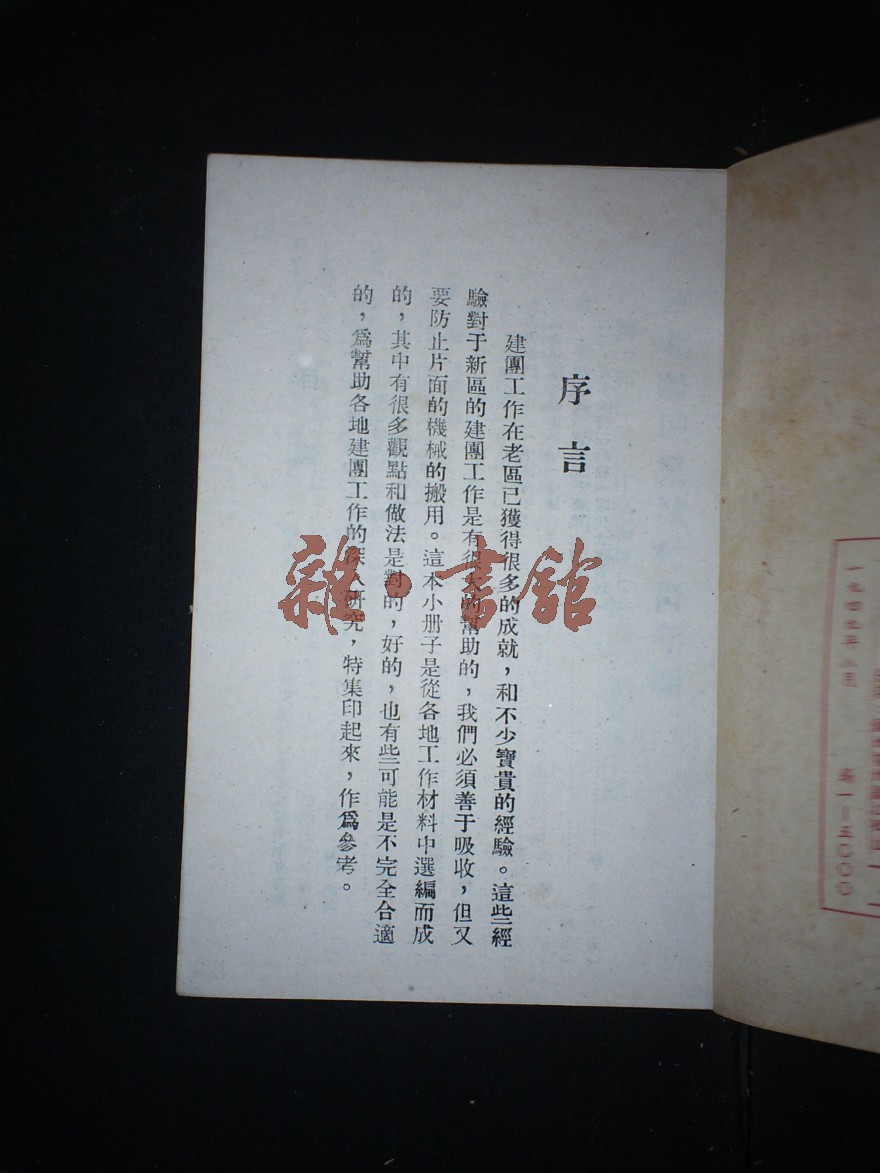 序言
建團工作在老區已獲得很多的成就，和不少寶貴的經驗。這些經
驗對于新區的建團工作是有很大的幫助的，我們必須善于吸收，但又
要防止片面的機械的搬用。這本小册子是從各地工作材料中選編而成
的，其中有很多觀點和做法是對的，好的，也有些可能是不完全合適
的，爲幫助各地建團工作的深入研究，特集印起來，作爲參考。
雜·書館